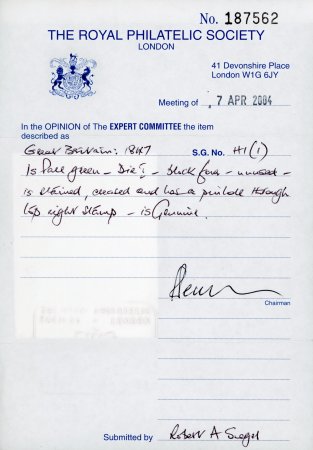 No. 187562
THE ROYAL PHILATELIC SOCIETY
LONDON
41 Devonshire Place
London W1G 6JY
Meeting of 7 APR 2004
In the OPINION of The EXPERT COMMITTEE the item
described as
Great Britain: 1847 S.G. No. H1(1)
1s Pale green - Die 1 - block four - unused -
is stained, creased and has a pinhole through
top right stamp - is Genuine.
Chairman
Submitted by Robert A Siegel